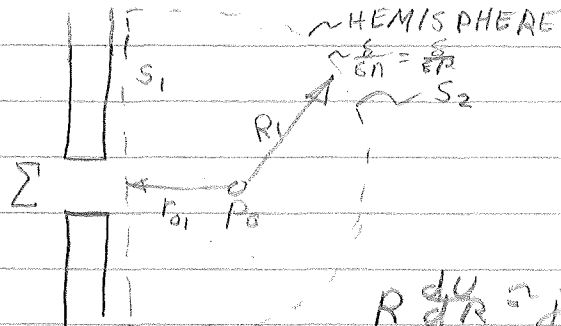 ~HEMISPHERE
~ δ/δn = δ/δR
S₁
S₂
R₁
Σ
r₀₁ P₀
R dU/dR